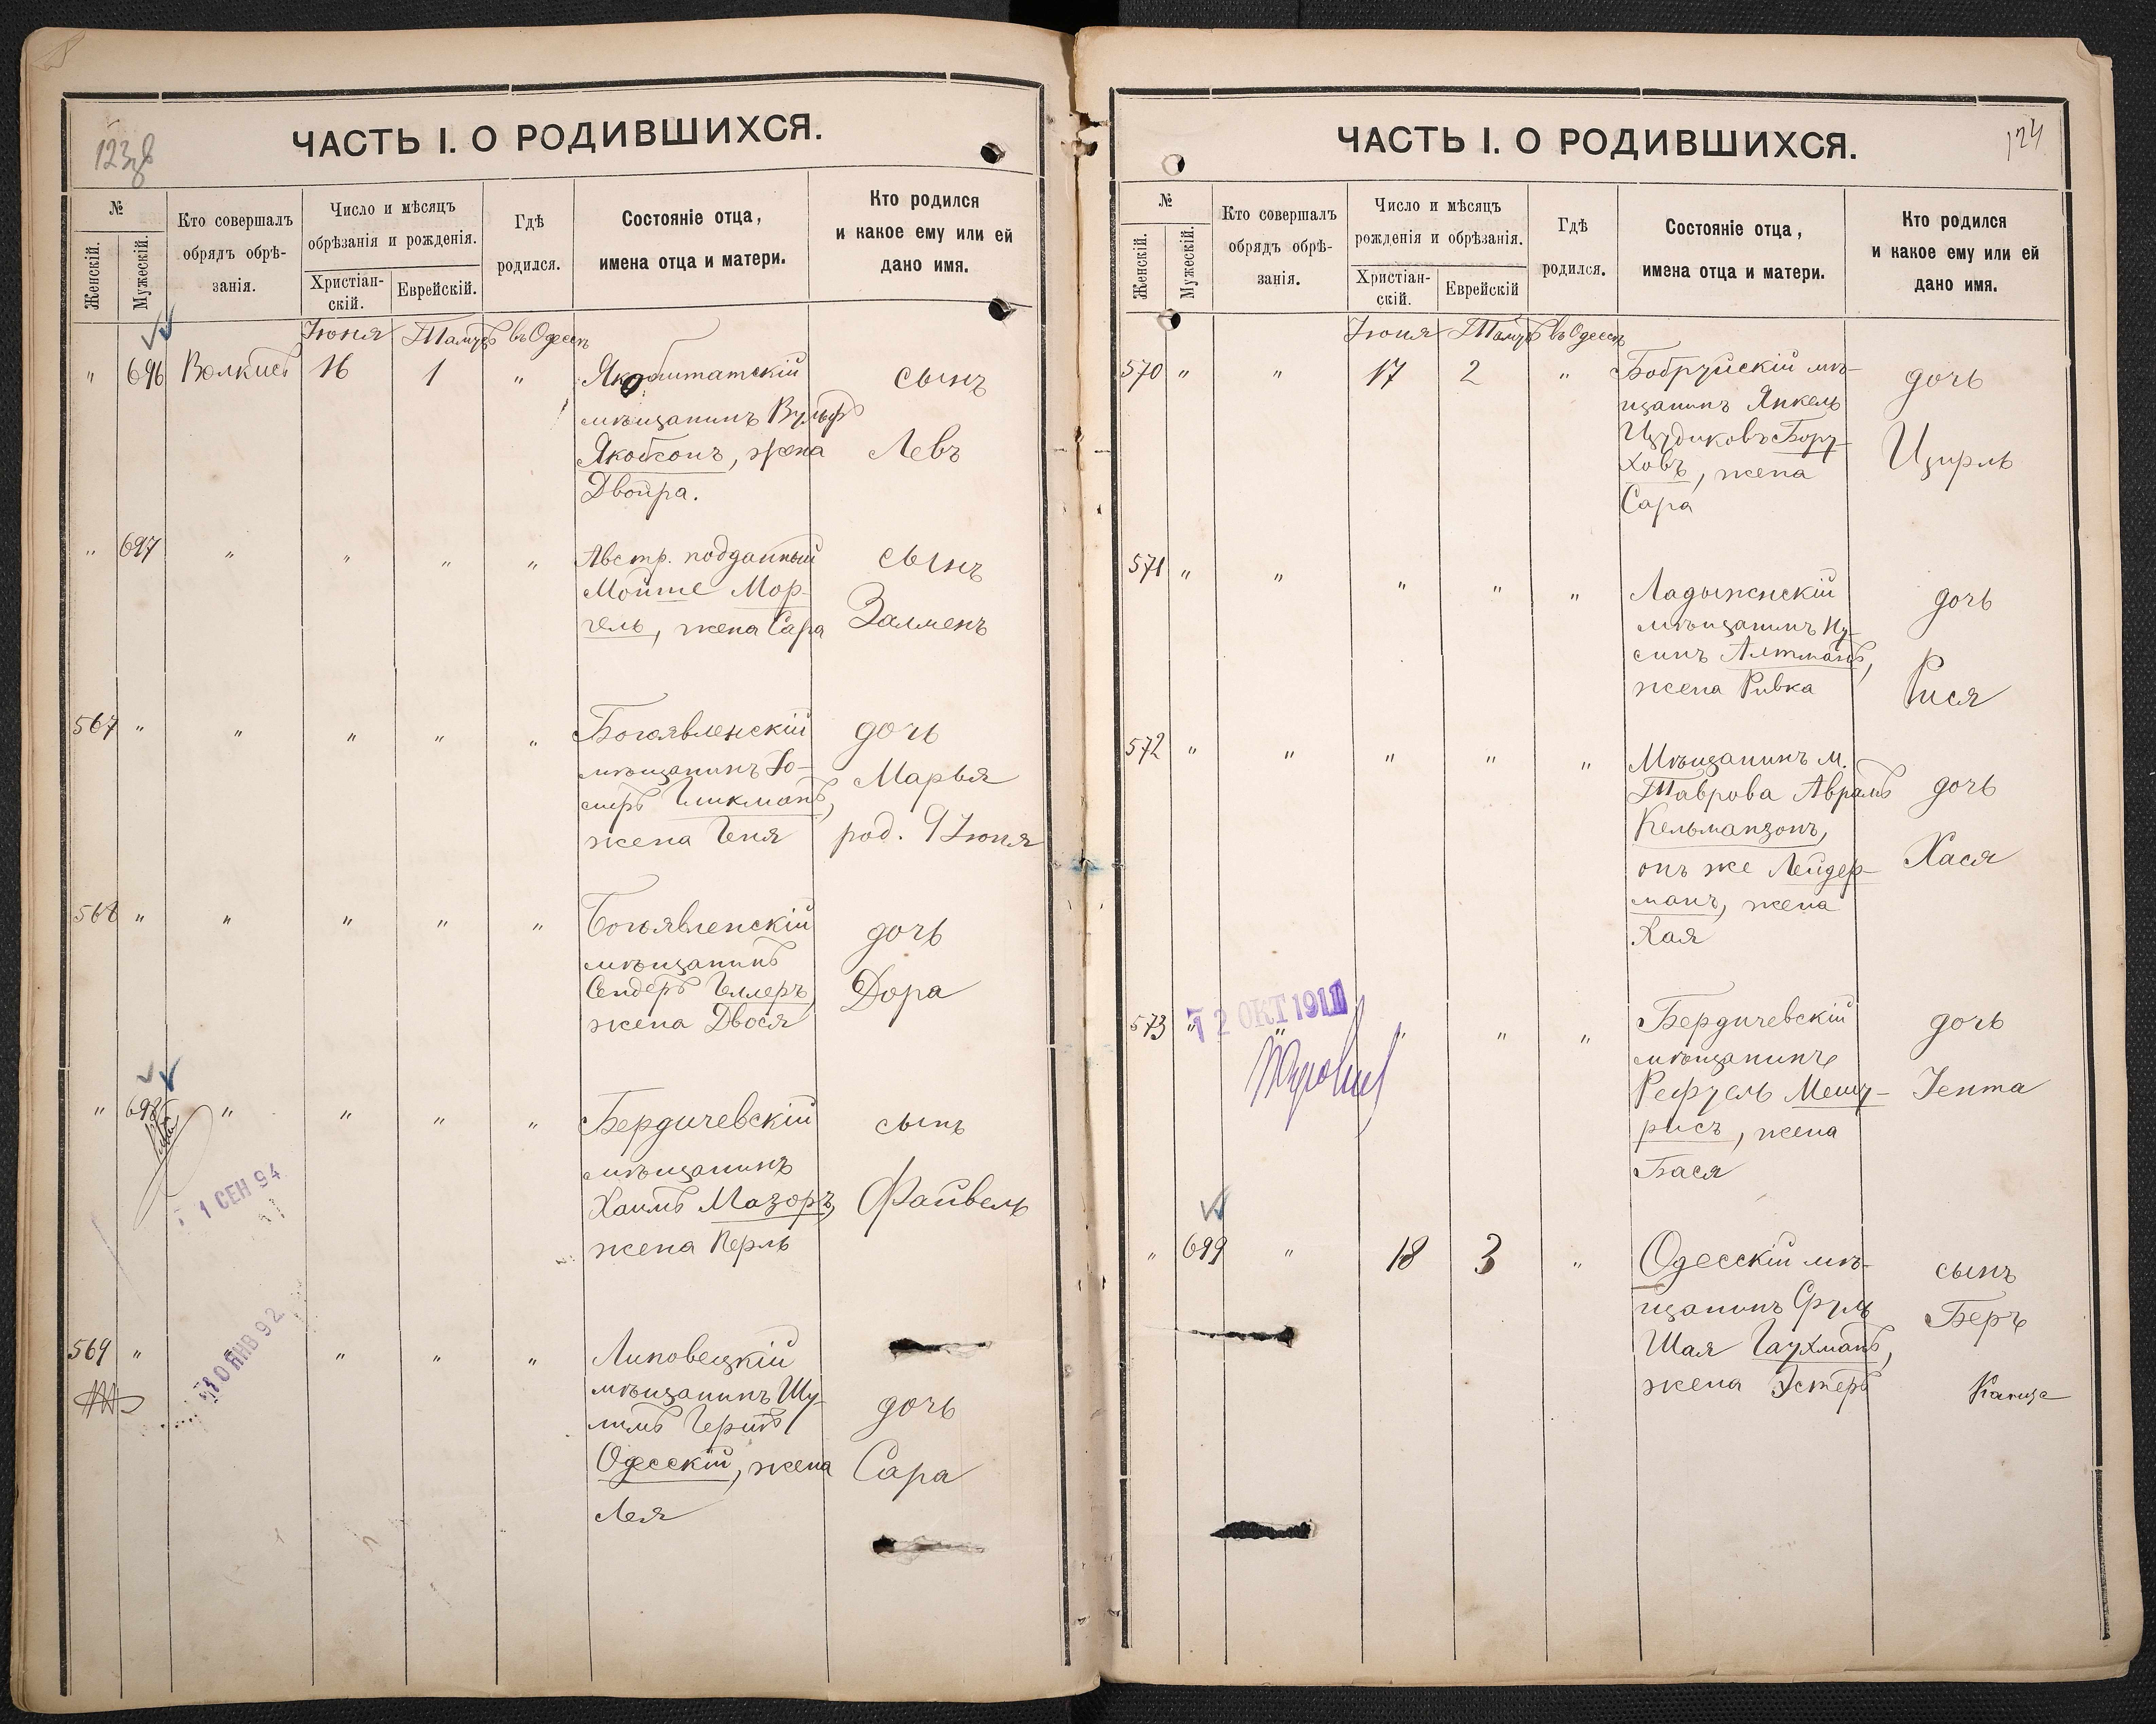 123об
ЧАСТЬ I. О РОДИВШИХСЯ.
№
Женскій.
Мужескій.
Кто совершалъ
обрядъ обрѣ-
занія.
Число и мѣсяцъ
обрѣзанія и рожденія.
Христіан-
скій.
Еврейскій.
Гдѣ
родился.
Состояніе отца,
имена отца и матери.
Кто родился
и какое ему или ей
дано имя.
Іюня Тамузъ въ Одессѣ
" 696 Волкисъ 16 1 " Якобштатскій сынъ
мѣщанинъ Вульфъ
Якобсонъ, жена Левъ
Двойра.
" 697 " " " " Австр. подданный сынъ
Мойше Мор-
гель, жена Сара Залменъ
567 " " " " " Богоявленскій дочь
мѣщанинъ Іо-
сифъ Гликманъ, Марья
жена Геня род. 9 Іюня
568 " " " " " Богоявленскій дочь
мѣщанинъ
Сендеръ Геллеръ, Дора
жена Двося
" 698 " " " " Бердичевскій сынъ
мѣщанинъ
1 СЕН 94
Хаимъ Мазоръ, Файвель
жена Перль
569 " " " " " Липовецкій
10 ЯНВ 92
мѣщанинъ Шу- дочь
лимъ Гершъ
Одесскій, жена Сара
Лея
124
ЧАСТЬ I. О РОДИВШИХСЯ.
№
Женскій.
Мужескій.
Кто совершалъ
обрядъ обрѣ-
занія.
Число и мѣсяцъ
рожденія и обрѣзанія.
Христіан-
скій.
Еврейскій
Гдѣ
родился.
Состояніе отца,
имена отца и матери.
Кто родился
и какое ему или ей
дано имя.
Іюня Тамузъ въ Одессѣ
570 " " 17 2 " Бобруйскій мѣ- дочь
щанинъ Янкель
Цудиковъ Бору- Цирль
ховъ, жена
Сара
571 " " " " " Ладыженскій дочь
мѣщанинъ Ну-
синъ Алтманъ,
жена Ривка Рися
572 " " " " " Мѣщанинъ м.
Таврова Аврамъ дочь
Кельманзонъ,
онъ же Лейдер- Хася
манъ, жена
Хая
573 " " " " " Бердичевскій дочь
2 ОКТ 1911
мѣщанинъ
Рефуель Мешу- Іента
рисъ, жена
Бася
" 699 " 18 3 " Одесскій мѣ- сынъ
щанинъ Сруль Беръ
Шая Гаухманъ,
жена Эстеръ